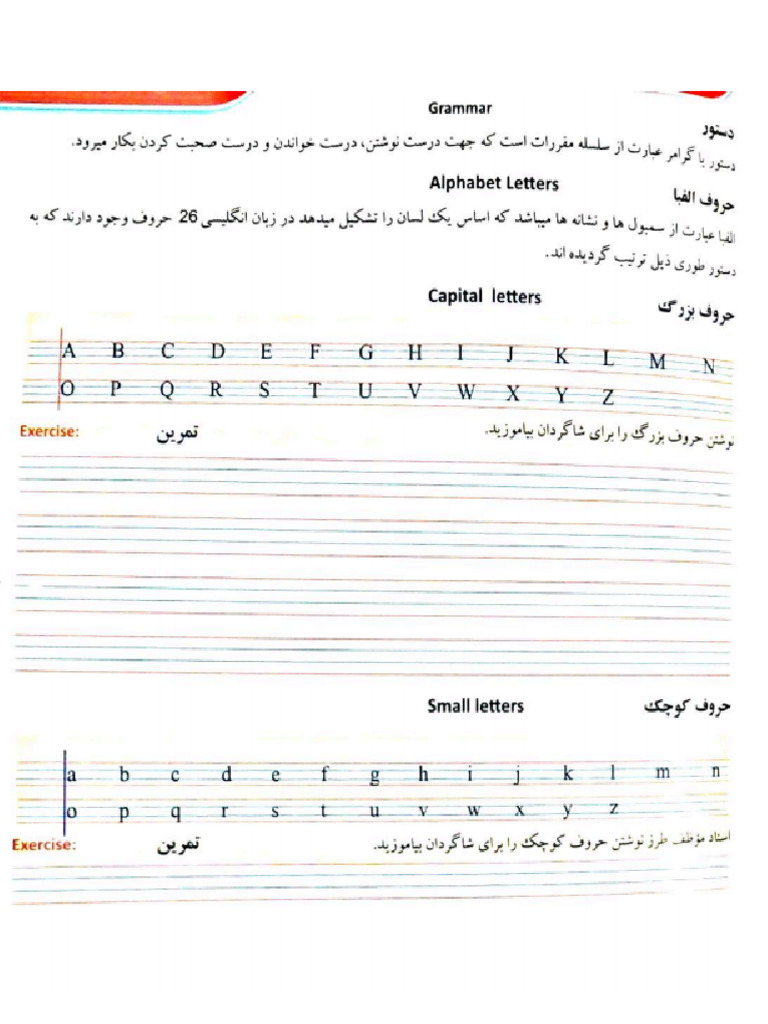 Grammar
دستور
دستور یا گرامر عبارت از سلسله مقررات است که جهت درست نوشتن، درست خواندن و درست صحبت کردن بکار میرود.
Alphabet Letters حروف الفبا
الفبا عبارت از سمبول ها و نشانه ها میباشد که اساس یک لسان را تشکیل میدهد در زبان انگلیسی 26 حروف وجود دارند که به
دستور طوری ذیل ترتیب گردیده اند.
Capital letters حروف بزرگ
A B C D E F G H I J K L M N
O P Q R S T U V W X Y Z
Exercise: تمرین نوشتن حروف بزرگ را برای شاگردان بیاموزید.
Small letters حروف کوچک
a b c d e f g h i j k l m n
o p q r s t u v w x y z
Exercise: تمرین استاد مؤظف طرز نوشتن حروف کوچک را برای شاگردان بیاموزید.